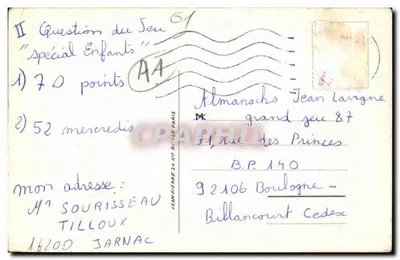 II Question du Jeu
"Spécial Enfants"
61
AA
1) 70 points
2) 52 mercredis
mon adresse :
Mr SOURISSEAU
TILLOUX
16200 JARNAC
Almanachs Jean Lavigne
grand jeu 87
31, rue des Princes
B.P. 140
92106 Boulogne-
Billancourt Cedex